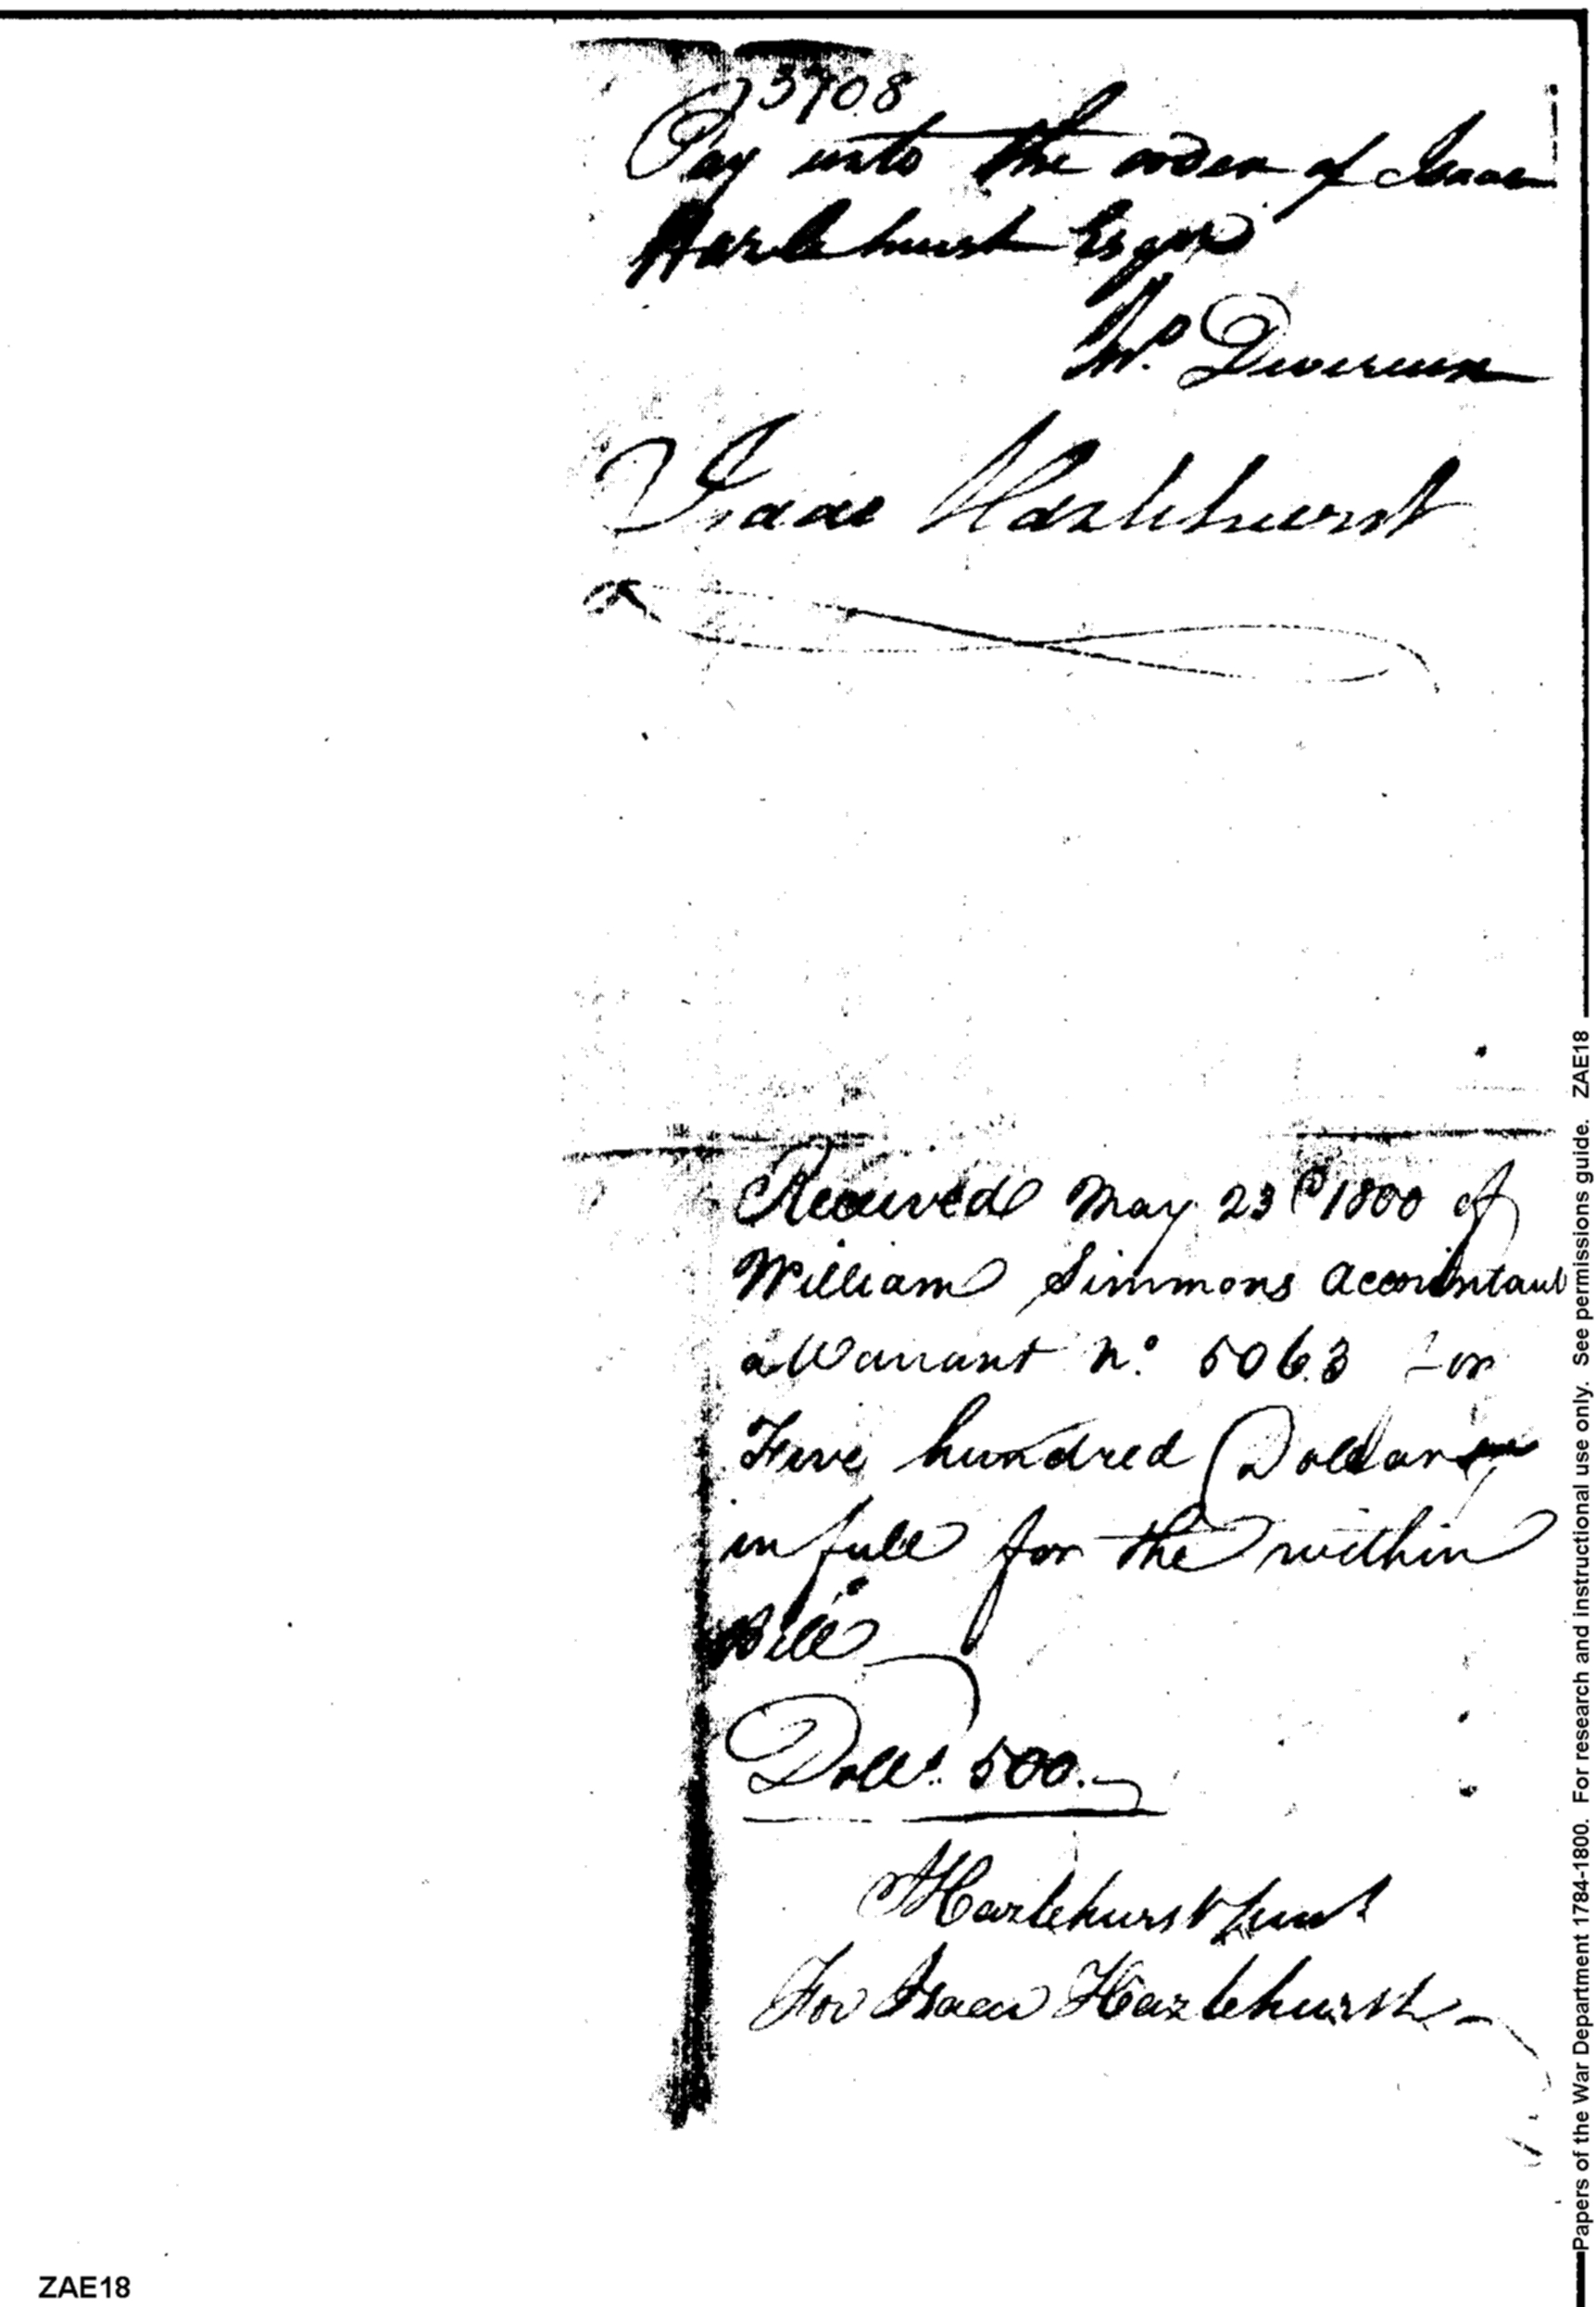 3708
Pay unto the order of Isaac
Hazlehurst Esqr
Wm. Devereux
Isaac Hazlehurst
Received May 23d 1800 of
William Simmons Accountant
a Warrant No. 5063 for
Five hundred Dollars
in full for the within
Bill
Dolls. 500.
Hazlehurst Junr
For Isaac Hazlehurst
Papers of the War Department 1784-1800. For research and instructional use only. See permissions guide. ZAE18
ZAE18